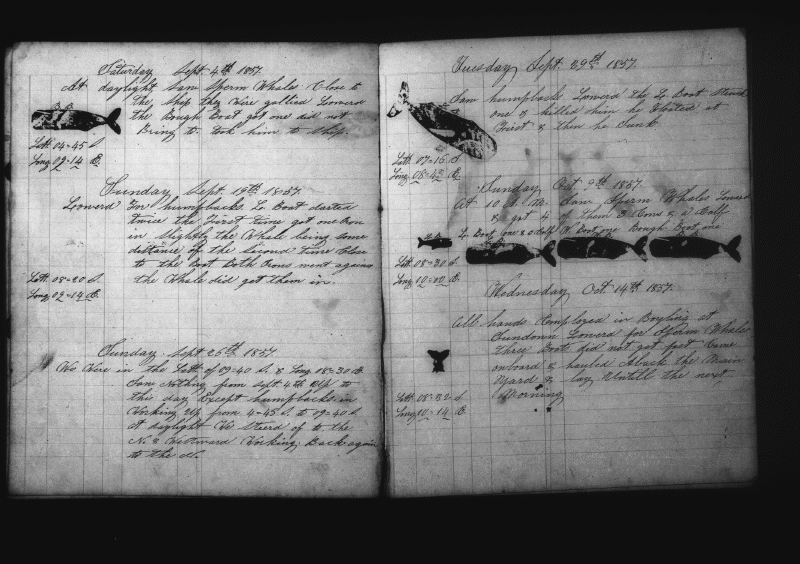 Saturday Sept. 4th 1857.
At daylight Saw Sperm Whales Close to
the Ship they Were gallied Lowerd
the Bough Boat got one did not
Bring to took him to Ship.
Latt. 04=45 S.
Long. 09=14 E.
Sunday Sept. 19th 1857.
Lowerd For humpbacks L. Boat darted
twice the First time got one Iron
in Slightly the Whale being Some
distance of the Second time Close
to the Boat Both Irons went against
the Whale did got them in.
Latt. 08=20 S.
Long. 09=14 E.
Sunday Sept 26th 1857.
We Were in the Latt. of 09=40 S. & Long. 18=30 E.
Saw Nothing from Sept 4th Up to
this day Except humpbacks in
Working Up from 4=45 S. to 09=40 S.
At daylight We Steerd of to the
N. & Westward Working Back again
to the N.
Tuesday Sept. 29th 1857.
Saw humpbacks Lowerd the L. Boat Struck
one & killed him he Floated at
First & then he Sunk.
Latt. 07=16 S.
Long. 08=43 E.
Sunday Oct. 9th 1857.
At 10 A. M. Saw Sperm Whales Lowerd
& got 4 of them 3 Cows & a Calf
L. Boat one & a Calf W. Boat one Bough Boat one
Latt. 08=30 S.
Long. 10=00 E.
Wednesday Oct. 14th 1857.
All hands Employed in Boyling at
Sundown Lowerd for Sperm Whales
three Boats did not get fast Came
onboard & hauled Aback the Main
Yard & lay Untill the next
Morning
Latt. 08=32 S.
Long. 10=14 E.